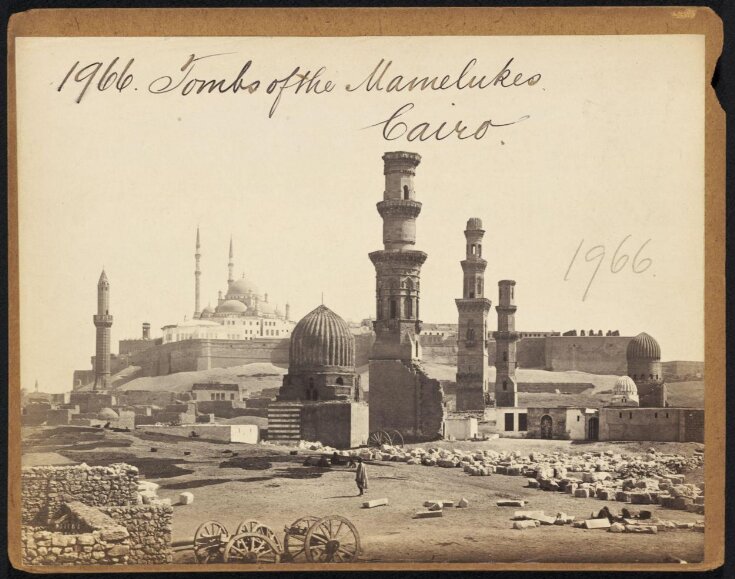 1966. Tombs of the Mamelukes.
Cairo.
1966.